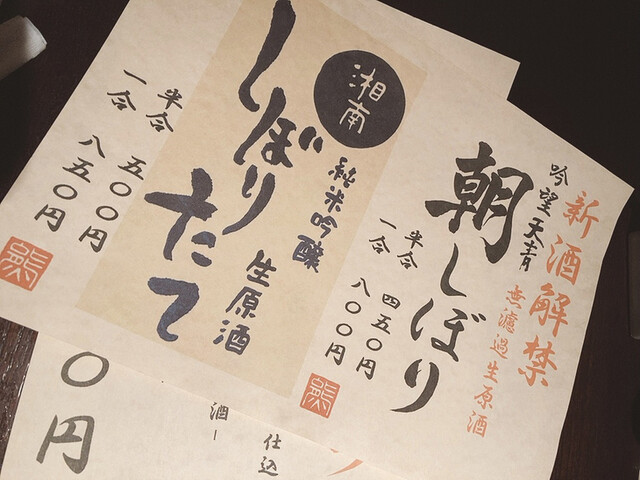 新酒解禁
無濾過生原酒
吟望天青
朝しぼり
半合 四五〇円
一合 八〇〇円
湘南
純米吟醸
生原酒
しぼりたて
半合 五〇〇円
一合 八五〇円
〇円
酒ー
仕込